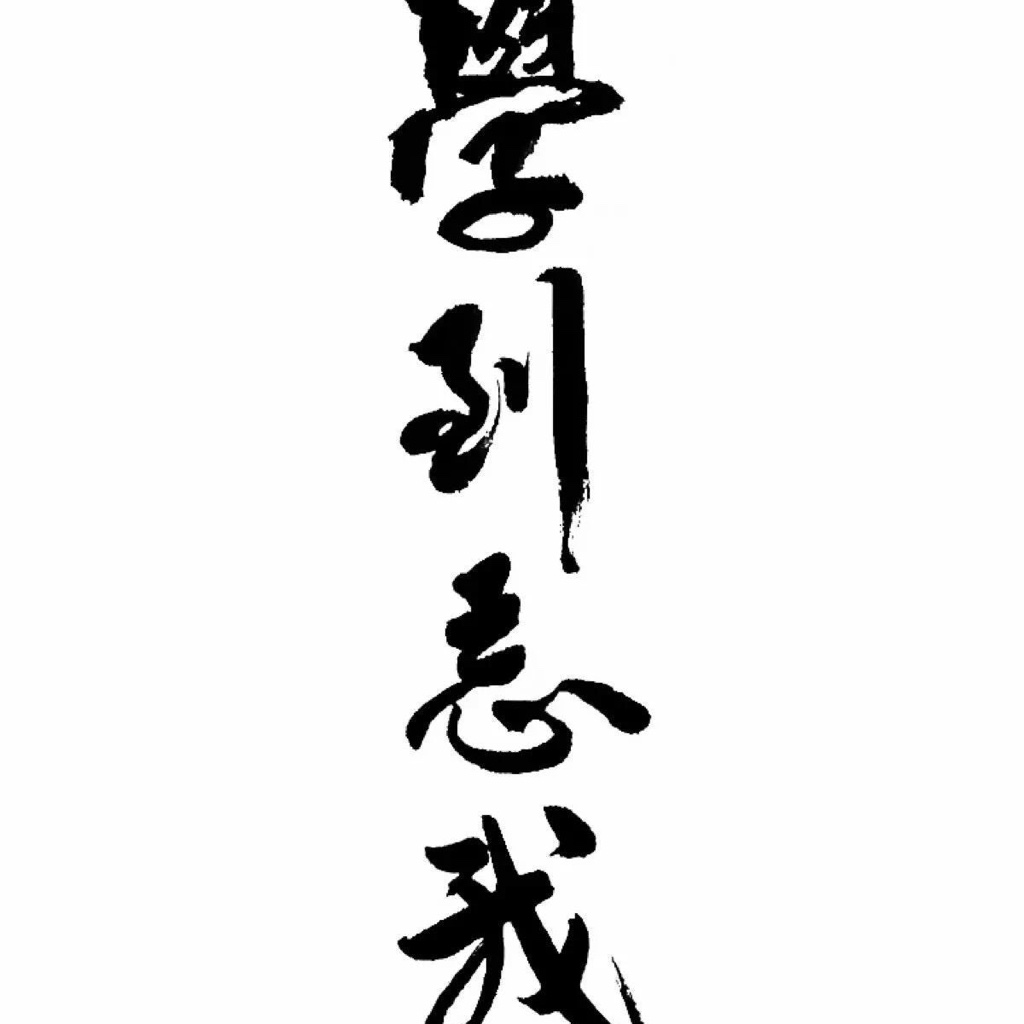 學到忘我